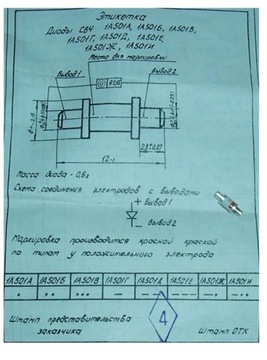 Этикетка
Диоды СВЧ 1А501А, 1А501Б, 1А501В,
1А501Г, 1А501Д, 1А501Е,
1А501Ж, 1А501И
Место для маркировки
Вывод 1
Вывод 2
12-1
Масса диода - 0,8г
Схема соединения электродов с выводами
Вывод 1
Вывод 2
Маркировка производится красной краской
по типам у положительного электрода
1А501А 1А501Б 1А501В 1А501Г 1А501Д 1А501Е 1А501Ж 1А501И
4
Штамп представительства
заказчика
Штамп ОТК